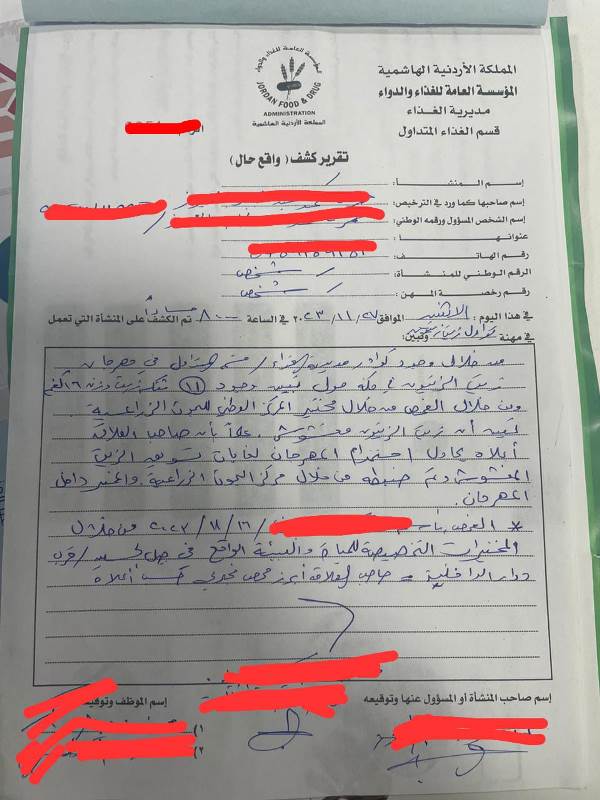 المملكة الأردنية الهاشمية
المؤسسة العامة للغذاء والدواء
مديرية الغذاء
قسم الغذاء المتداول
المؤسسة العامة للغذاء والدواء
JORDAN FOOD & DRUG
ADMINISTRATION
المملكة الأردنية الهاشمية
تقرير كشف ( واقع حال )
إسم المنشأة :
إسم صاحبها كما ورد في الترخيص :
إسم الشخص المسؤول ورقمه الوطني :
عنوانها :
رقم الهاتف :
الرقم الوطني للمنشأة : / شخص
رقم رخصة المهن : / شخص
في هذا اليوم : الاثنين الموافق ٢٠٢٣/١١/٢٧ في الساعة ٨٠٠ مساءاً تم الكشف على المنشأة التي تعمل
في مهنة وتبين :
من خلال وجود كوادر مديرية الغذاء / قسم المتداول في مهرجان
زيت الزيتون في مكة مول تبين وجود (١١) تنكة زيت وزن ١٦ كغم
ومن خلال الفحص من خلال مختبر المركز الوطني للبحوث الزراعية
تبين أن زيت الزيتون مغشوش علماً بأن صاحب العلاقة
أعلاه يحاول استخدام المهرجان لغايات تسويق الزيت
المغشوش وتم ضبطه من خلال مركز البحوث الزراعية والمختبر داخل
المهرجان.
* الفحص / ٢٠٢٣/١١/١٦ من خلال
المختبرات التخصصية للمياه والبيئة الواقع في جبل الحسين / قرب
دوار الداخلية صاحب العلاقة أبرز فحص مخبري حسب أعلاه
إسم صاحب المنشأة أو المسؤول عنها وتوقيعه
إسم الموظف وتوقيعه
(١
(٢